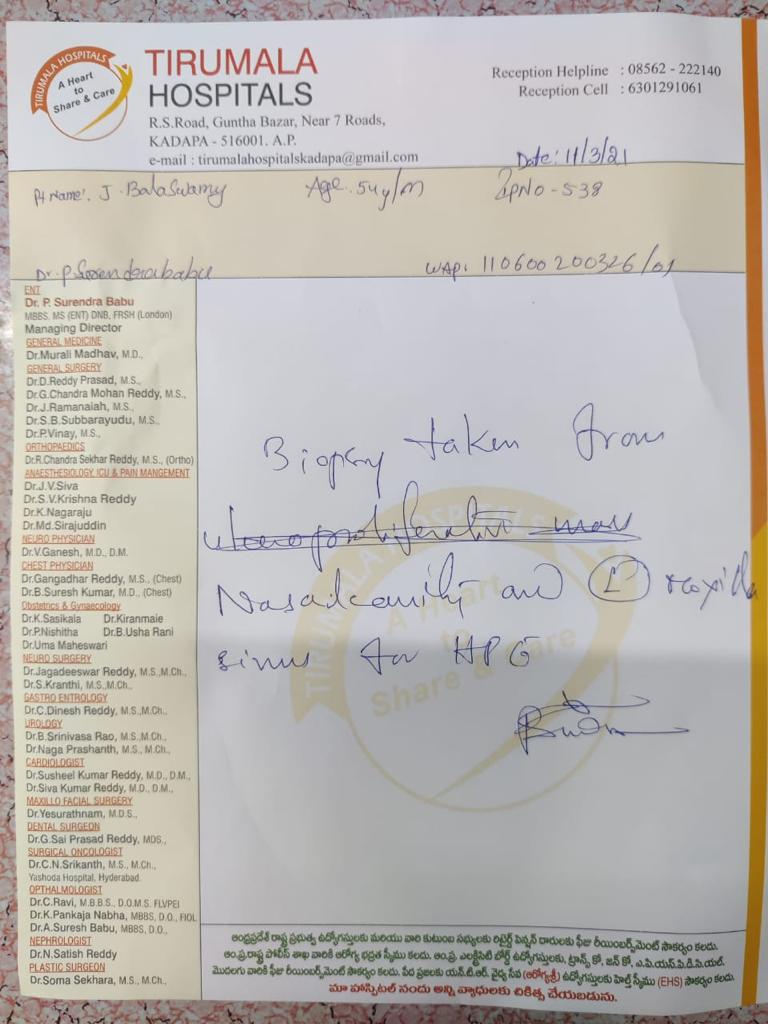 TIRUMALA HOSPITALS
A Heart
to
Share & Care
TIRUMALA
HOSPITALS
R.S.Road, Guntha Bazar, Near 7 Roads,
KADAPA - 516001. A.P.
e-mail : tirumalahospitalskadapa@gmail.com
Reception Helpline : 08562 - 222140
Reception Cell : 6301291061
Date: 11/3/21
Pt Name: J. Balaswamy Age. 54y/m IPNO - 538
Dr. P. Surendrababu WAP: 110600200326/01
ENT
Dr. P. Surendra Babu
MBBS, MS (ENT) DNB, FRSH (London)
Managing Director
GENERAL MEDICINE
Dr.Murali Madhav, M.D.,
GENERAL SURGERY
Dr.D.Reddy Prasad, M.S.,
Dr.G.Chandra Mohan Reddy, M.S.,
Dr.J.Ramanaiah, M.S.,
Dr.S.B.Subbarayudu, M.S.,
Dr.P.Vinay, M.S.,
ORTHOPAEDICS
Dr.R.Chandra Sekhar Reddy, M.S., (Ortho)
ANAESTHESIOLOGY, ICU & PAIN MANGEMENT
Dr.J.V.Siva
Dr.S.V.Krishna Reddy
Dr.K.Nagaraju
Dr.Md.Sirajuddin
NEURO PHYSICIAN
Dr.V.Ganesh, M.D., D.M.
CHEST PHYSICIAN
Dr.Gangadhar Reddy, M.S., (Chest)
Dr.B.Suresh Kumar, M.D., (Chest)
Obstetrics & Gynaecology
Dr.K.Sasikala Dr.Kiranmaie
Dr.P.Nishitha Dr.B.Usha Rani
Dr.Uma Maheswari
NEURO SURGERY
Dr.Jagadeeswar Reddy, M.S.,M.Ch.,
Dr.S.Kranthi, M.S.,M.Ch.,
GASTRO ENTROLOGY
Dr.C.Dinesh Reddy, M.S.,M.Ch.,
UROLOGY
Dr.B.Srinivasa Rao, M.S.,M.Ch.,
Dr.Naga Prashanth, M.S., M.Ch.,
CARDIOLOGIST
Dr.Susheel Kumar Reddy, M.D., D.M.,
Dr.Siva Kumar Reddy, M.D., D.M.,
MAXILLO FACIAL SURGERY
Dr.Yesurathnam, M.D.S.,
DENTAL SURGEON
Dr.G.Sai Prasad Reddy, MDS.,
SURGICAL ONCOLOGIST
Dr.C.N.Srikanth, M.S., M.Ch.,
Yashoda Hospital, Hyderabad.
OPTHALMOLOGIST
Dr.C.Ravi, M.B.B.S., D.O.M.S. FLVPEI
Dr.K.Pankaja Nabha, MBBS, D.O., FIOL
Dr.A.Suresh Babu, MBBS, D.O.,
NEPHROLOGIST
Dr.N.Satish Reddy
PLASTIC SURGEON
Dr.Soma Sekhara, M.S., M.Ch.,
Biopsy taken from
mass
Nasal cavity and L maxilla
sinus for HPE
ఆంధ్రప్రదేశ్ రాష్ట్ర ప్రభుత్వ ఉద్యోగస్తులకు మరియు వారి కుటుంబ సభ్యులకు రిటైర్డ్ పెన్షన్ దారులకు ఫీజు రీయింబర్స్‌మెంట్ సౌకర్యం కలదు.
ఆం.ప్ర.రాష్ట్ర పోలీస్ శాఖ వారికి ఆరోగ్య భద్రత స్కీము కలదు. ఆం.ప్ర. ఎలక్ట్రిసిటి బోర్డ్ ఉద్యోగస్తులకు, ట్రాన్స్ కో, జన్ కో, ఎ.పి.యస్.పి.డి.సి.యల్.
మొదలగు వారికి ఫీజు రీయింబర్స్‌మెంట్ సౌకర్యం కలదు. పేద ప్రజలకు యన్.టి.ఆర్. వైద్య సేవ (ఆరోగ్యశ్రీ) ఉద్యోగస్తులకు హెల్త్ స్కీము (EHS) సౌకర్యం కలదు.
మా హాస్పిటల్ నందు అన్ని వ్యాధులకు చికిత్స చేయబడును.